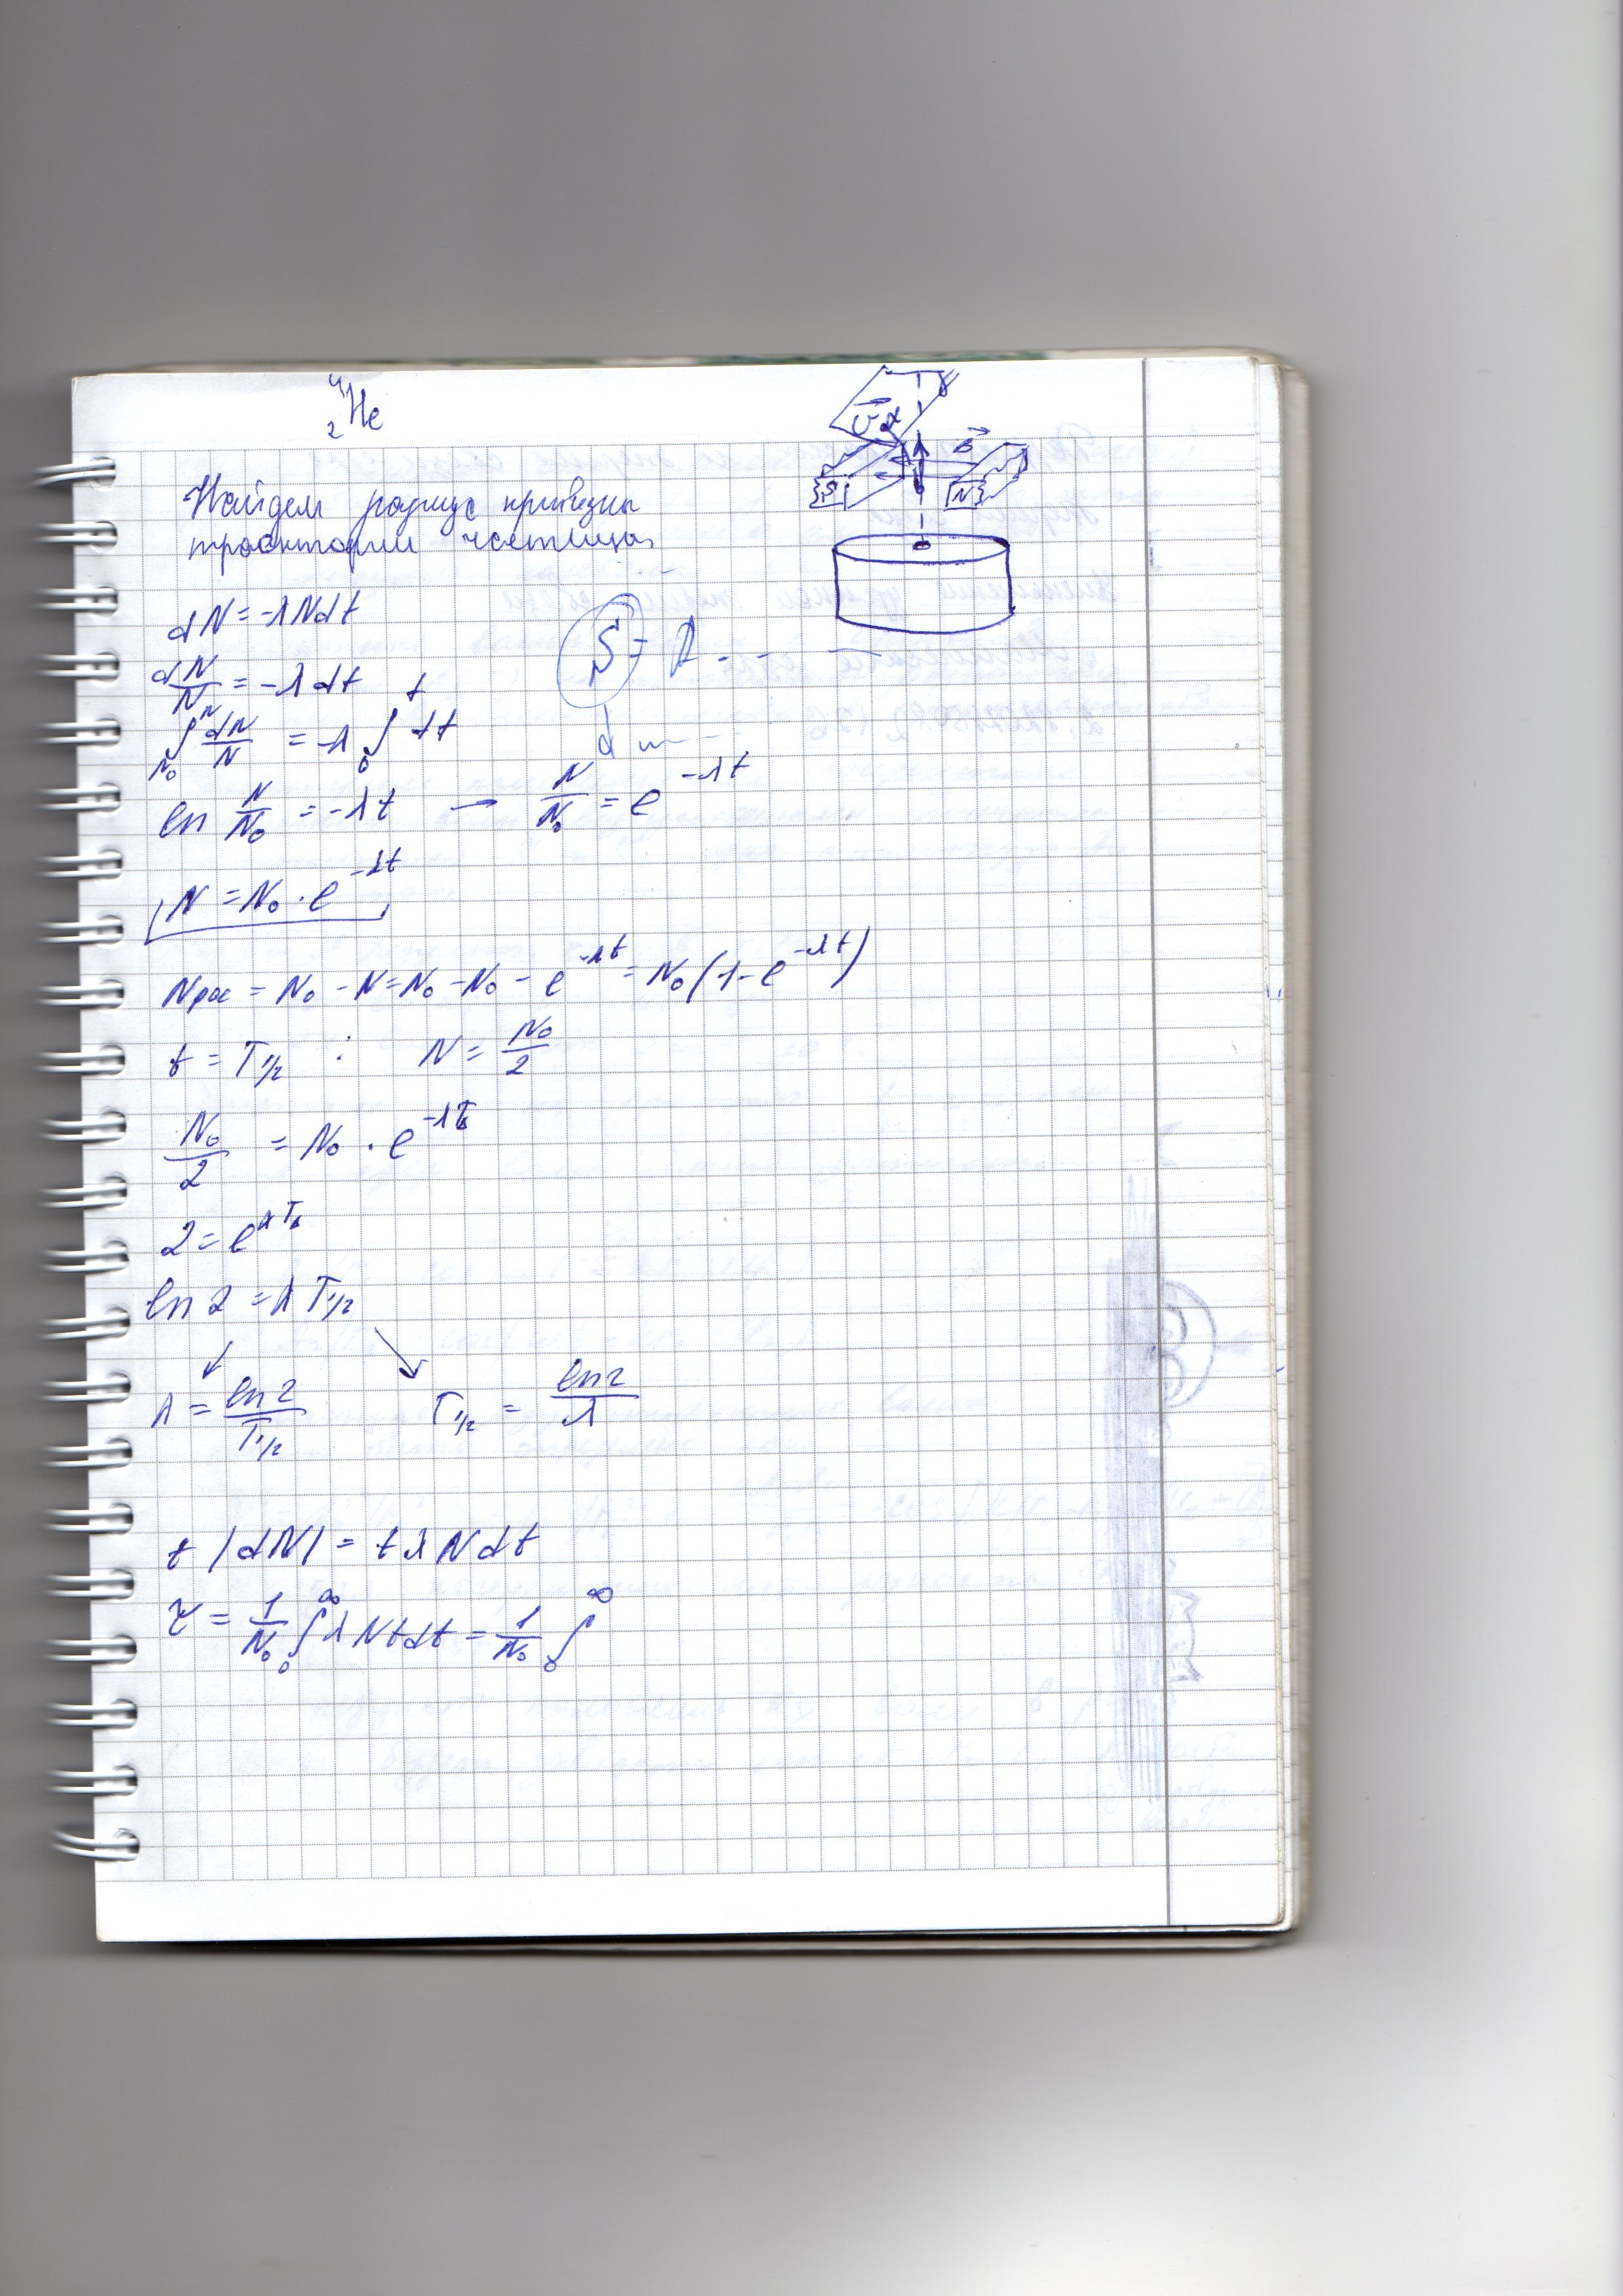 ⁴₂He
γ
v⃗ α
B⃗
S N
Найдем радиус кривизны
траектории частицы
dN = -λNdt
dN/N = -λdt
∫_{N₀}^{N} dN/N = -λ ∫_{0}^{t} dt
ln N/N₀ = -λt → N/N₀ = e^{-λt}
N = N₀ · e^{-λt}
Nрас = N₀ - N = N₀ - N₀ - e^{-λt} = N₀(1 - e^{-λt})
t = T_{1/2} : N = N₀/2
N₀/2 = N₀ · e^{-λT}
2 = e^{λT}
ln 2 = λ T_{1/2}
λ = ln 2/T_{1/2} T_{1/2} = ln 2/λ
t |dN| = tλNdt
τ = 1/N₀ ∫_{0}^{∞} λNtdt = 1/N₀ ∫_{0}^{∞}